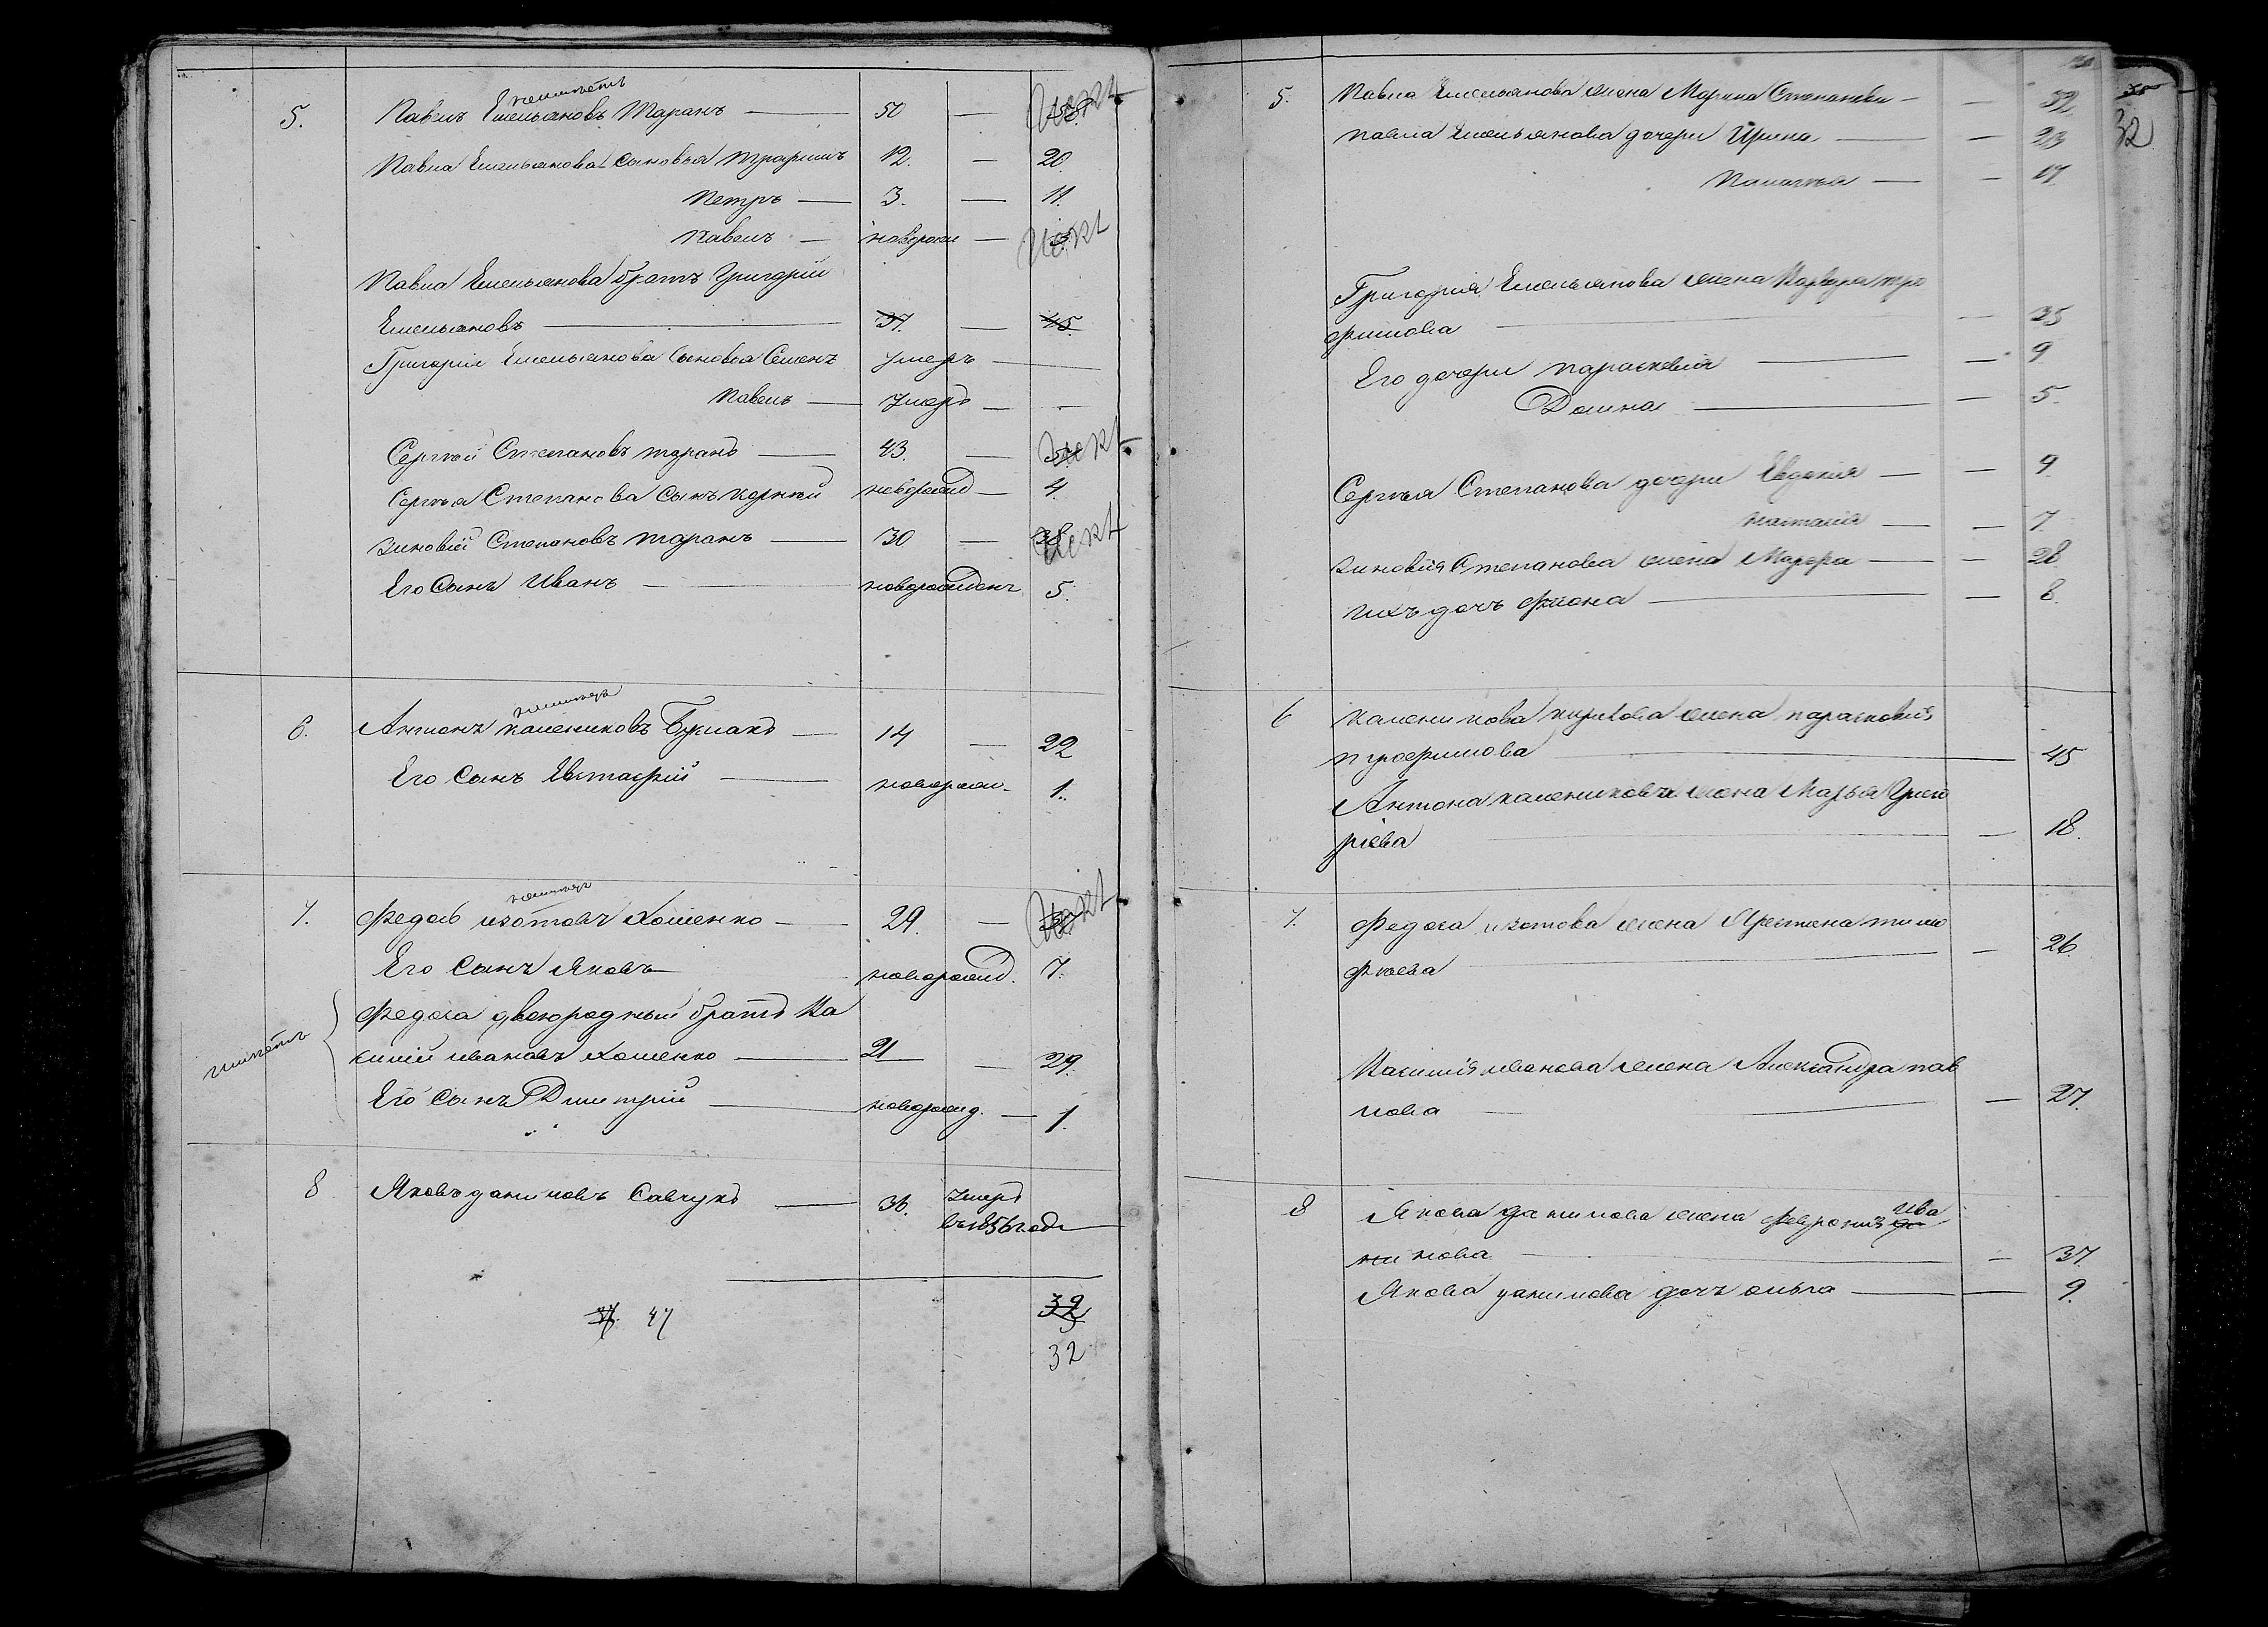 5. Павелъ Емельяновъ Таранъ — 50 —
Павла Емельянова сыновья Трафимъ 12. — 20.
Петръ — 3. — 11.
Павелъ — новорож —
Павла Емельянова братъ Григорій
Емельяновъ — 37. — 45
Григорія Емельянова сыновья Семенъ умеръ —
Павелъ — умеръ — —
Сергѣй Степановъ Таранъ — 43. —
Сергѣя Степанова сынъ Корнѣй новорожд — 4.
Зиновій Степановъ Таранъ — 30 — 38
Его сынъ Иванъ — новорожденъ 5.
6. Антонъ Калениковъ — 14 — 22
Его сынъ Евстафій — новорож — 1.
7. Федосъ Изотовъ Хоменко — 29. —
Его сынъ Яковъ — новорожд. 7.
Федоса двоюродный братъ Ма
ксимъ Ивановъ Хоменко — 21 — 29.
Его сынъ Димитрій — новорожд. — 1.
8 Яковъ Даниловъ Савчукъ — 36. умеръ
въ 1856 годѣ
47 39
32
32
5. Павла Емельянова жена Марина Степанова — — 52
Павла Емельянова дочери Ирина — — 23
— — 17.
Григорія Емельянова жена Варвара Тро
фимова — — 35
Его дочери Парасковія — — 9
Домна — — 5.
Сергѣя Степанова дочери Евдокія — — 9
Наталія — — 7.
Зиновія Степанова жена — — 28
Ихъ дочь — — 8.
6 Каленикова жена Парасковія
Трофимова — 45
Антона Каленикова жена Марья Григо
рьева — — 18.
7. Федоса Изотова жена Тимо
фѣева — — 26.
Максима Иванова жена Александра Пав
лова — — 27.
8 Якова Данилова жена Февронія Ива
нова — — 37
Якова Данилова дочь Ольга — — 9.